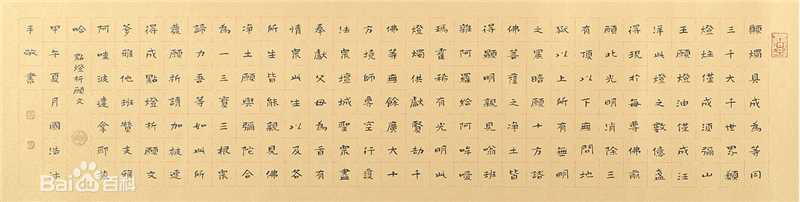 願燭具成為等同
三千大千世界願
燈炷僅成須彌山
王願燈油僅成汪
洋此燈之數億盞
得現於每尊佛前
願此光明消除三
有頂以下無間地
獄以上所有無明
之黑暗願十方諸
佛菩薩之淨土皆
得顯明親見嗡班
雜阿羅給阿吽噯
瑪稀有奇光明此
燈燭供獻賢劫千
佛等無餘廣大十
方境師專空行護
法眾壇城聖眾盡
奉獻父母為首有
情眾此生以及各
所生皆能親見佛
淨土願與彌陀合
為一三寶三根眾
諦力吾等如此所
發願祈請加被速
得成點燈祈願文
爹雅他班贊支雅
阿哇波達拿耶娑
哈 點燈祈願文
甲午夏月國浩沐
手敬書
Bai百科